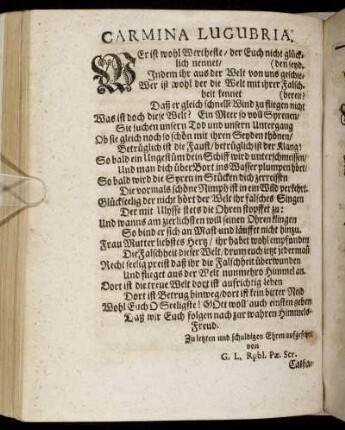 CARMINA LUGUBRIA.
WEr ist wohl Wertheste/ der Euch nicht glück-
lich nennet/ (den seyd.
Indem ihr aus der Welt von uns geschie-
Wer ist wohl der die Welt mit ihrer Falsch-
heit kennet (bereit?
Daß er gleich schnelle Wind zu fliegen nicht
Was ist doch diese Welt? Ein Meer so voll Syrenen/
Sie suchen unsern Tod und unsern Untergang
Ob sie gleich noch so schön mit ihren Seyden thönen/
Betrüglich ist die Faust/ betrüglich ist der Klang!
So bald ein Ungestüm dein Schiff wird unterschmeissen/
Und man dich über Bort ins Wasser plumpen hört/
So bald wird die Syren in Stücken dich zerreissen
Die vormals schöne Nimph ist in ein Wild verkehrt.
Glückseelig der nicht hört der Welt ihr falsches Singen
Der mit Ulysse stets die Ohren stopffet zu:
Und wanns am zierlichsten will seinen Ohren klingen
So bind er sich an Mast und läuffet nicht hinzu.
Frau Mutter liebstes Hertz/ ihr habet wohl empfunden
Die Falschheit dieser Welt/ drum euch itzt jederman
Recht seelig preist daß ihr die Falschheit überwunden
Und flieget aus der Welt nunmehro Himmel an.
Dort ist die treue Welt dort ist aufrichtig leben
Dort ist Betrug hinweg/ dort ist kein bitter Neid
Wohl Euch O Seeligste! GOtt woll auch einsten geben
Daß wir Euch folgen nach zur wahren Himmels-
Freud.
Zu letzten und schuldigen Ehren aufgesetzet
von
G. L., Rpbl. Pæ. Scr.